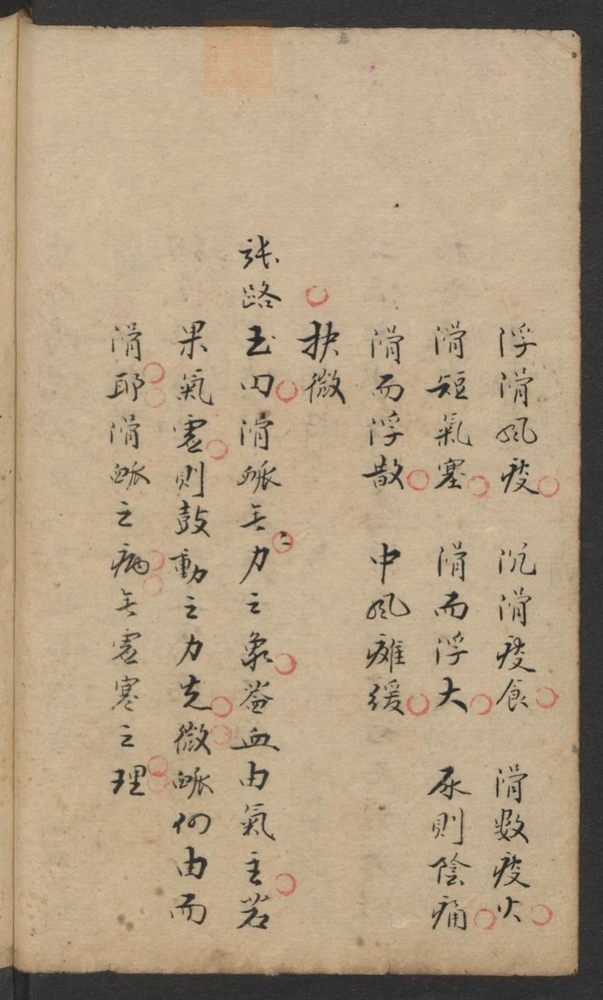 浮滑風痰 沉滑痰食 滑數痰火
滑短氣塞 滑而浮大 尿則陰痛
滑而浮散 中風癱緩
抉微
張路玉曰滑脈無力之象蓋血由氣主若
果氣虛則鼓動之力先微脈何由而
滑耶滑脈之病無虛寒之理